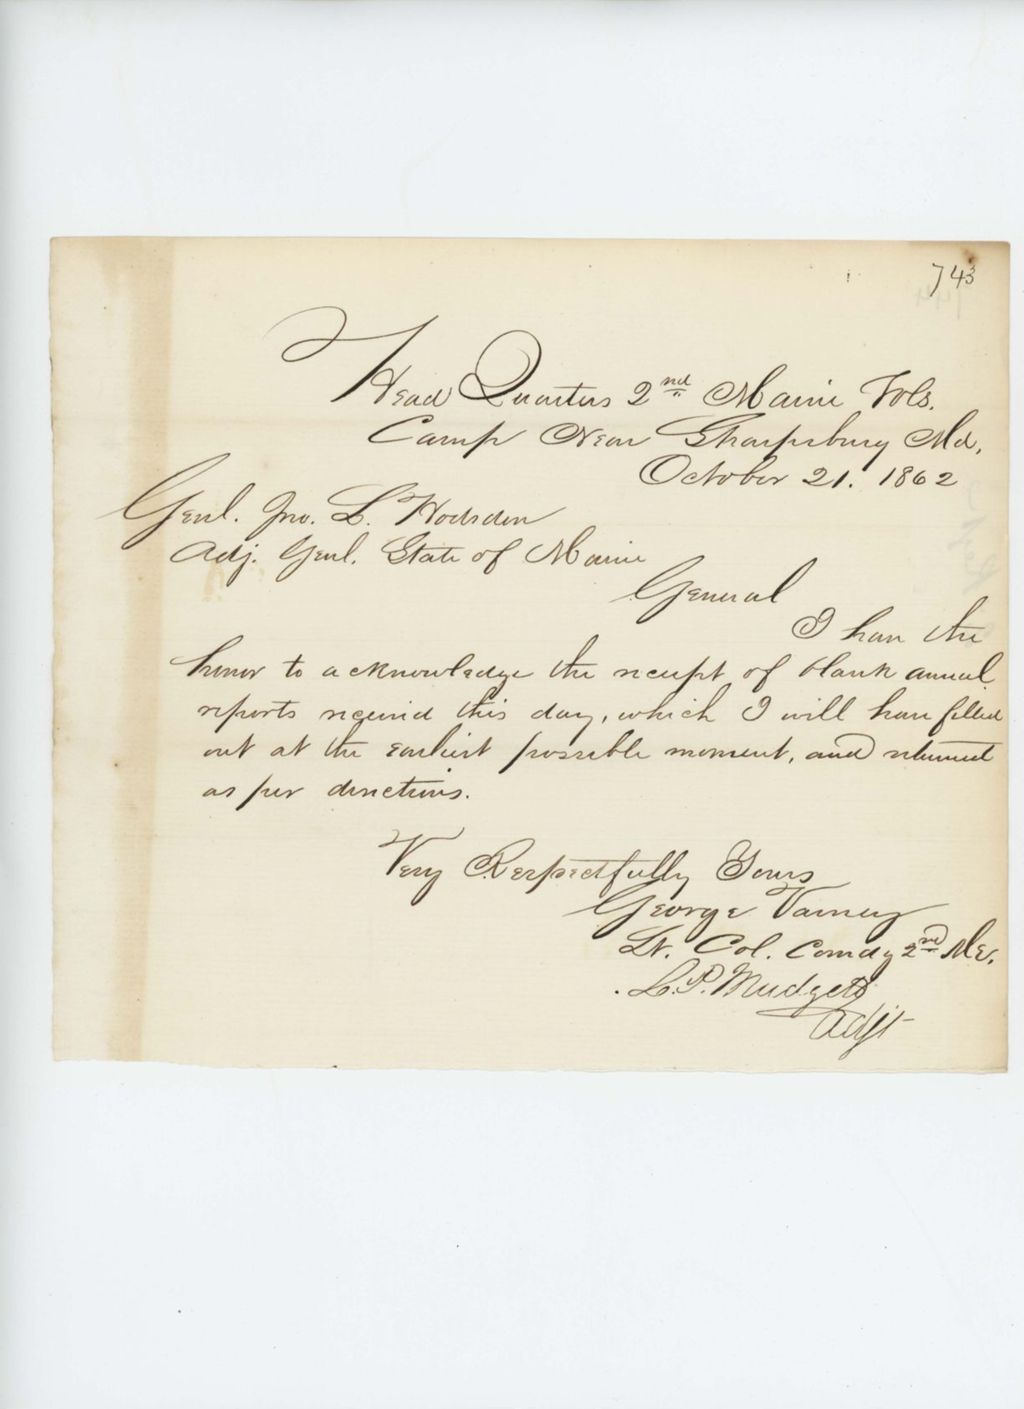 743
Head Quarters 2nd Maine Vols.
Camp Near Sharpsburg Md,
October 21. 1862
Genl. Jno. L. Hodsdon
Adj. Genl. State of Maine
General
I have the
honor to acknowledge the receipt of blank annual
reports received this day, which I will have filled
out at the earliest possible moment, and returned
as per directions.
Very Respectfully Yours
George Varney
Lt. Col. Comdg 2nd Me.
L.P. Mudgett
Adjt